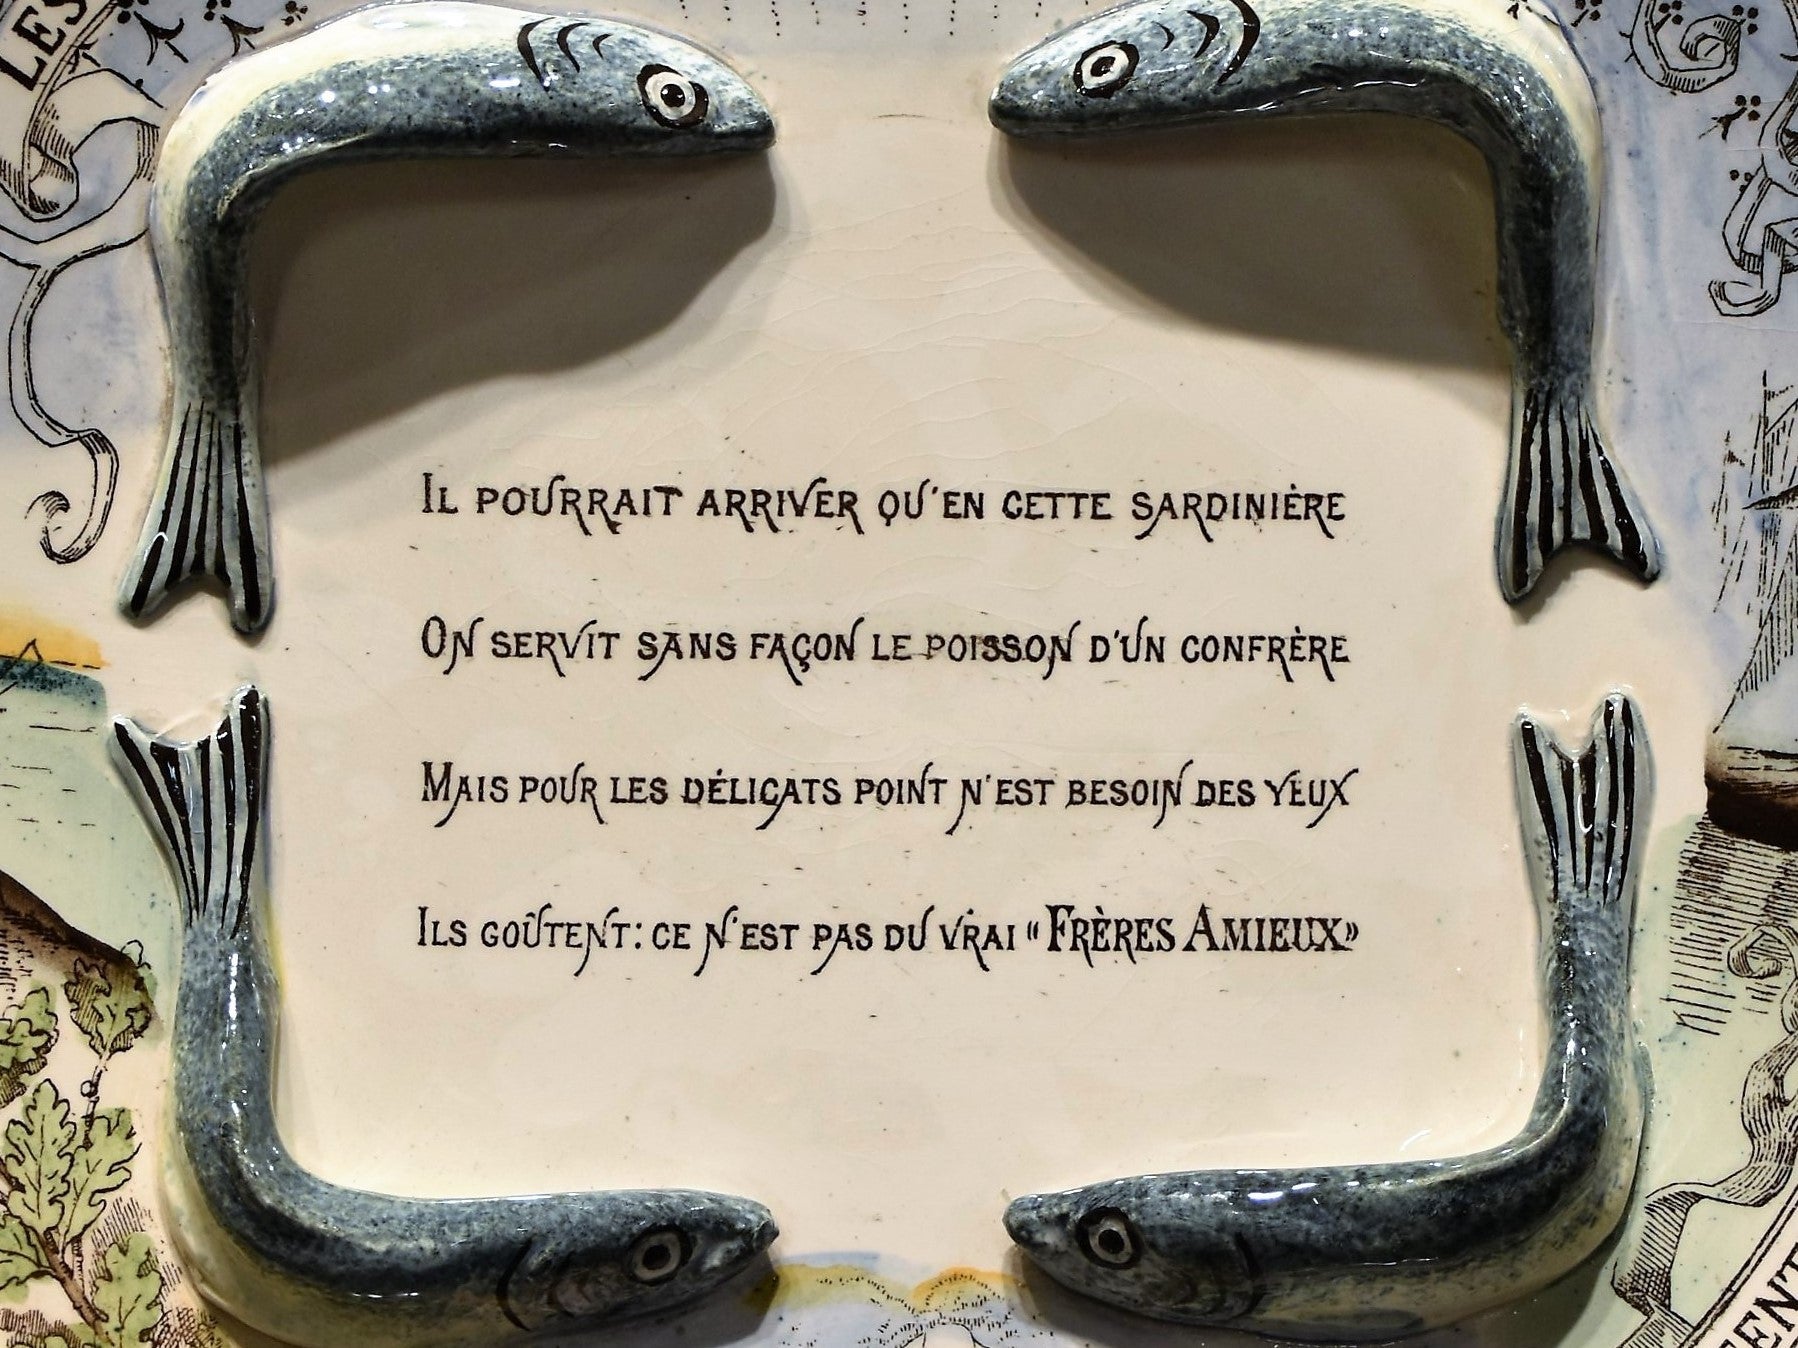 LES
IL POURRAIT ARRIVER QU'EN CETTE SARDINIÈRE
ON SERVIT SANS FAÇON LE POISSON D'UN CONFRÈRE
MAIS POUR LES DÉLICATS POINT N'EST BESOIN DES YEUX
ILS GOÛTENT: CE N'EST PAS DU VRAI « FRÈRES AMIEUX»